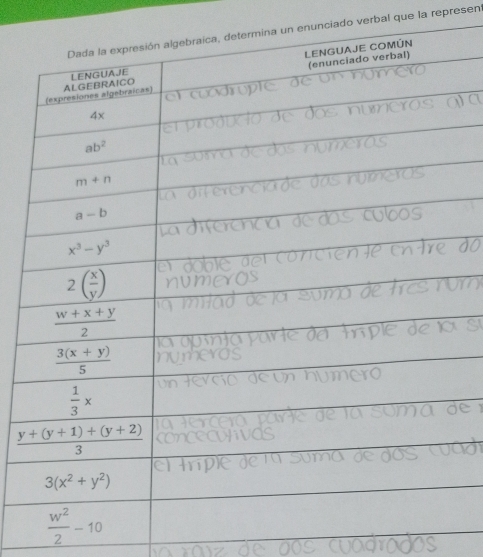 Dada la expresión algebraica, determina un enunciado verbal que la represen
LENGUAJE ALGEBRAICO (expresiones algebraicas)
LENGUAJE COMÚN (enunciado verbal)
4x
el cuadruple de un numero
ab²
el producto de dos numeros
m + n
la suma de dos numeros
a − b
la diferencia de dos numeros
x³ − y³
La diferencia de dos cubos
2 (x/y)
el doble del conciente entre do
numeros
(w + x + y)/2
la mitad de la suma de tres num
3(x + y)/5
la quinta parte del triple de la su
numeros
1/3 x
un tercio de un numero
(y + (y + 1) + (y + 2))/3
la tercera parte de la suma de
concecutivos
3(x² + y²)
el triple de la suma de dos cuad
w²/2 − 10
la raiz de dos cuadrados